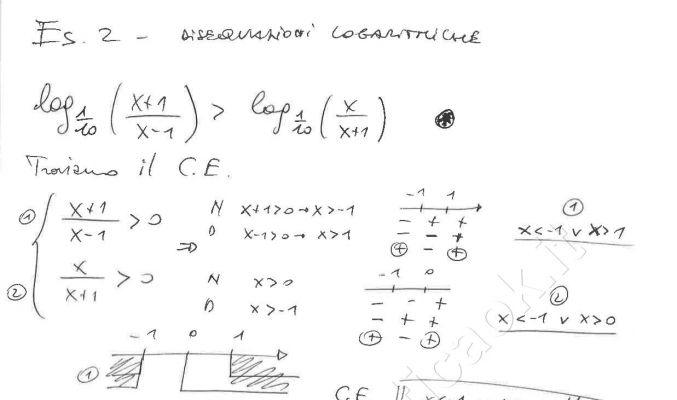 Es. 2 - DISEQUAZIONI LOGARITMICHE
log 1/10 (x+1 / x-1) > log 1/10 (x / x+1) *
Troviamo il C.E.
① { x+1 / x-1 > 0 N x+1>0→x>-1 D x-1>0→x>1 -1 1 ① x<-1 v x>1
- + +
- - +
+ - +
⇒
② { x / x+1 > 0 N x>0 D x>-1 -1 0 ② x<-1 v x>0
- - +
- + +
+ - +
-1 0 1
①
C.E.